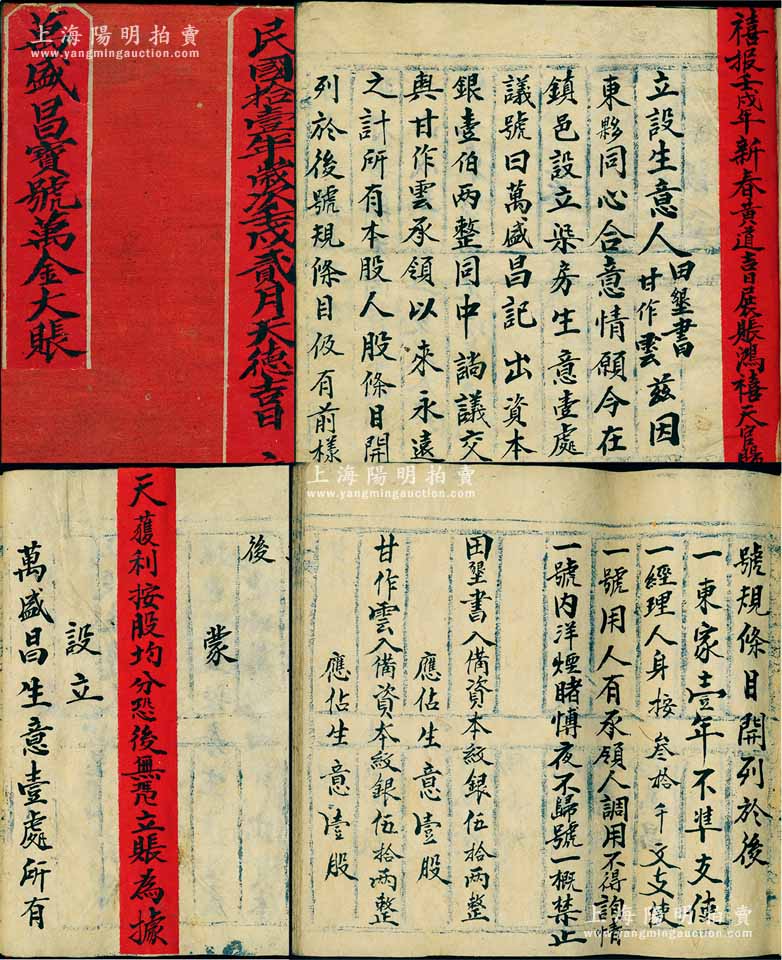 民國拾壹年歲次壬戌貳月天德吉日 立
萬盛昌寶號萬金大賬
禧报壬戌年新春黄道吉日展賬鴻禧天官賜
立設生意人田墾書甘作雲茲因
東夥同心合意情願今在
鎮邑設立染房生意壹處
議號曰萬盛昌記出資本
銀壹佰两整同中議交
與甘作雲承領以來永遠
之計所有本股人股條目開
列於後號規條目仅有前樣
號規條目開列於後
一東家壹年不準支使
一經理人身按叁拾千文支使
一號用人有承領人調用不得詢情
一號内洋烟賭博夜不歸號一概禁止
田墾書入備資本紋銀伍拾两整
應佔生意壹股
甘作雲入備資本紋銀伍拾两整
應佔生意壹股
後
蒙
天獲利按股均分恐後無凭立賬為據
設立
萬盛昌生意壹處所有
上海陽明拍卖
www.yangmingauction.com
上海陽明拍卖
www.yangmingauction.com
上海陽明拍卖
www.yangmingauction.com
上海陽明拍卖
www.yangmingauction.com